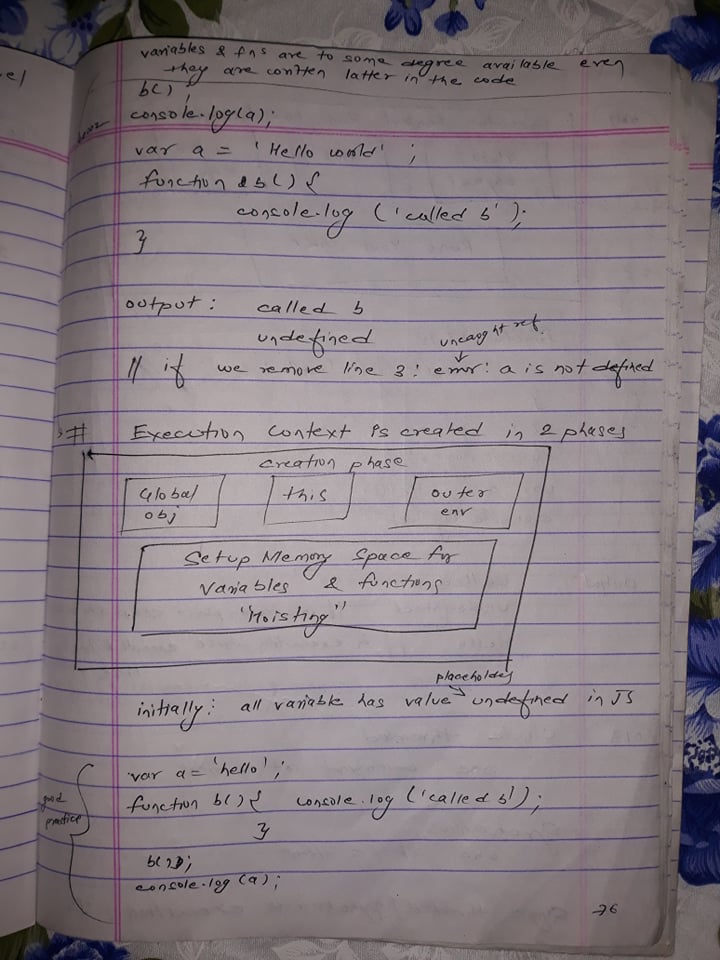 el
variables & fns are to some degree available even
they are written latter in the code
b() ;
console.log(a);
var a = 'Hello world' ;
function b() {
console.log ('called b');
}
output : called b
undefined
uncaught ref.
// if we remove line 3 : error : a is not defined
# Execution Context is created in 2 phases
creation phase
Global obj
this
outer env
Setup Memory Space for
variables & functions
"Hoisting"
placeholder
initially : all variable has value undefined in JS
var a = 'hello' ;
function b() { console.log ('called b');
}
good practice
b();
console.log (a);
76